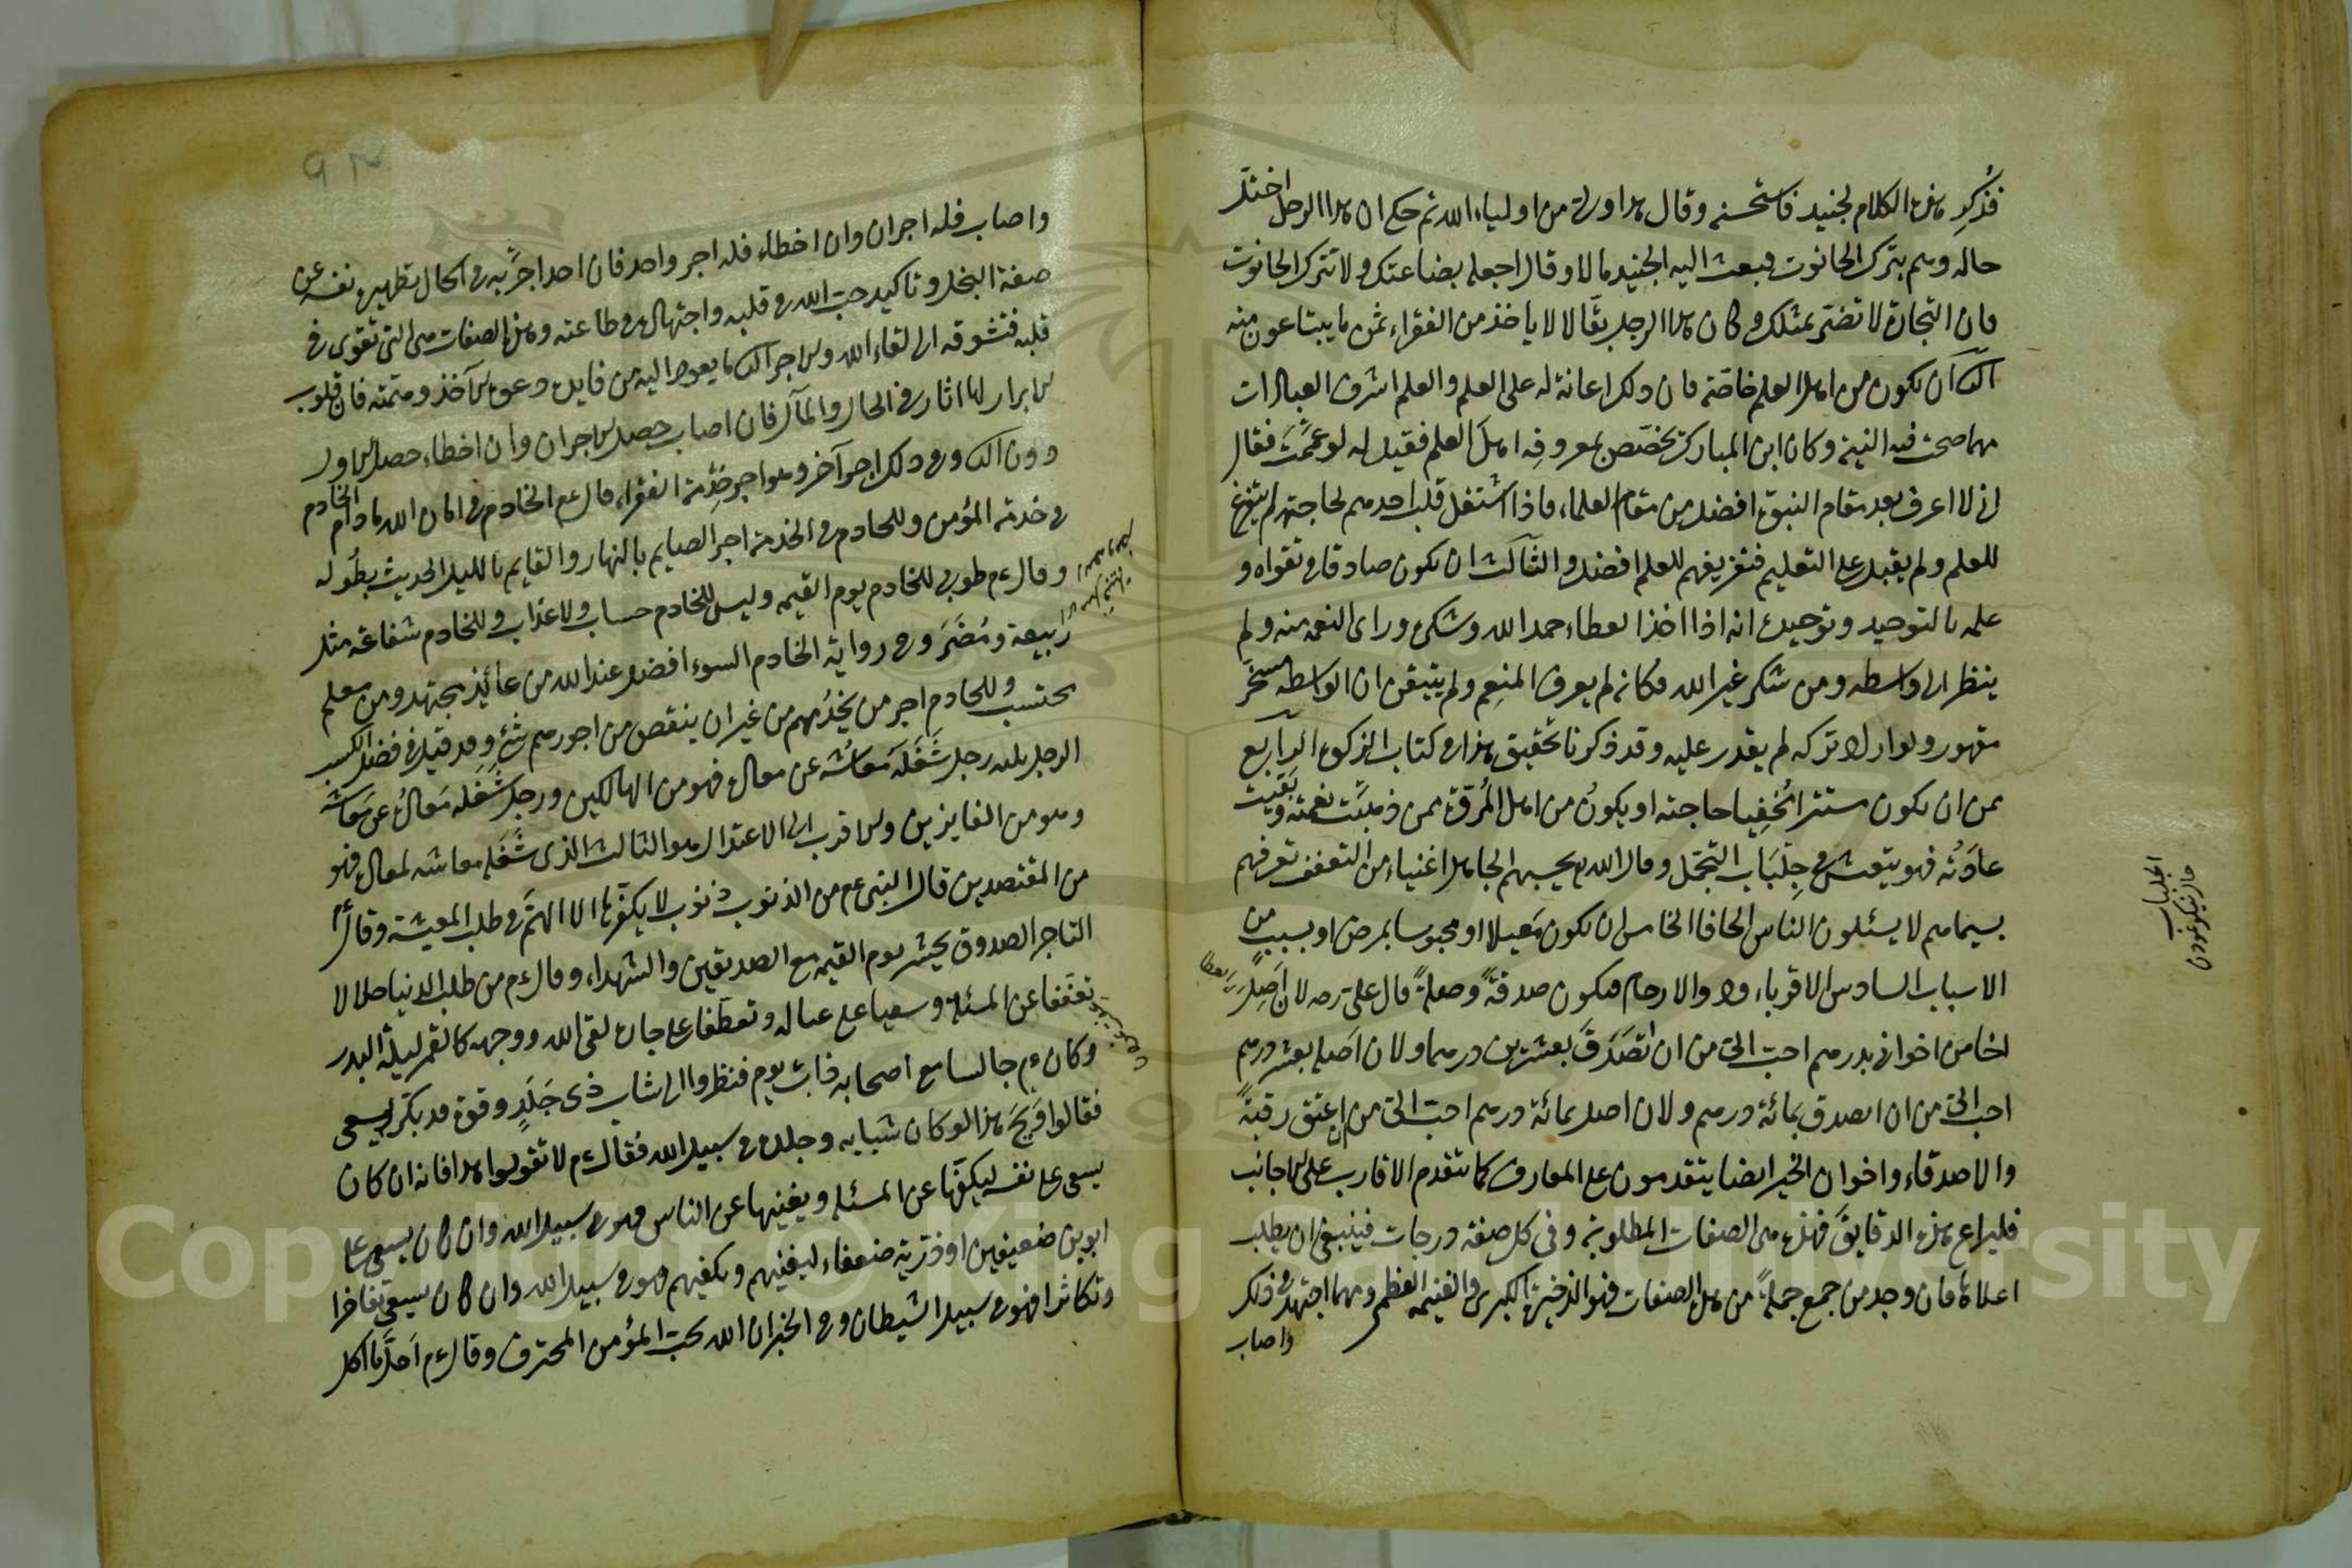 فذُكِر هذا الكلام لجنيد فاستحسنه وقال هذا ولي من اولياء الله ثم حكي ان هذا الرجل اختل
حاله وهم بترك الحانوت فبعث اليه الجنيد مالا وقال اجعله بضاعتك ولا تترك الحانوت
فان التجارة لا تضر بمثلك وكان هذا الرجل بقّالا لا ياخذ من الفقراء ثمن ما يبتاعون منه
الثالث ان يكون من اهل العلم خاصّة فان ذلك اعانة له على العلم والعلم اشرف العبادات
مهما صحت فيه النية وكان ابن المبارك يخصّص بمعروفه اهل العلم فقيل له لو عمّمت فقال
اني لا اعرف بعد مقام النبوة افضل من مقام العلماء فاذا اشتغل قلب احدهم لحاجته لم يتفرغ
للعلم ولم يقبل على التعليم فتفريغهم للعلم افضل والثالث ان يكون صادقا في تقواه و
علمه بالتوحيد وتوحيده انه اذا اخذ العطاء حمد الله وشكره وراى النعمة منه ولم
ينظر الى واسطه ومن شكر غير الله فكانه لم يعرف المنعِم ولم يتيقن ان الواسطه مسخّر
مقهور ولو اراد تركه لم يقدر عليه وقد ذكرنا تحقيق هذا في كتاب الزكوة الرابع
ممن ان يكون مستترا مُخفِيا حاجته او يكون من اهل المُروّة ممن ذهبت نعمته وبقيت
عادته فهو يتعيش في جِلبَاب التجمّل وقال الله يحسبهم الجاهل اغنياء من التعفف تعرفهم
بسيماهم لا يسئلون الناس الحافا الخامس ان يكون مَعيلا او محبوسا بمرض او بسبب من
الاسباب السادس الاقرباء واولا الارحام فيكون صدقةً وصلةً قال علي رضه لان اَصِل
اخا من اخواني بدرهم احبّ الىّ من ان اتصدق بعشرين درهما ولان اصله بعشر درهم
احب الىّ من ان اتصدق بمائة درهم ولان اصله بمائة درهم احبّ الىّ من ان اعتق رقبةً
والاصدقاء واخوان الخير ايضا يتقدمون على المعارف كما يتقدم الاقارب على الاجانب
فليراع هذه الدقايق فهذه هي الصفات المطلوبة وفي كل صفة درجات فينبغي ان يطلب
اعلاها فان وجد من جمع جملةً من هذه الصفات فهو الذخيرة الكبرى والغنيمة العظمى ومهما اجتهد في ذلك
واصاب
الجلباب
واصاب فله اجران وان اخطاء فله اجر واحد فان احد اجرَيه في الحال تطهيره نفسه عن
صفة البخل وتاكيد حب الله في قلبه واجتهاده في طاعته وهذه الصفات هي التي تقوى في
قلبه فتشوقه الى لقاء الله والاجر الثاني ما يعود اليه من فايدة دعوة الآخذ وهمّته فان قلوب
الابرار لها اثار في الحال والمآل فان اصاب حصل الاجران وان اخطاء حصل الاول
دون الثاني وفي ذلك اجر آخر وهو اجر خِدْمة الفقراء قال ءم الخادم في امان الله ما دام الخادم
في خدمة المؤمن وللخادم في الخدمة اجر الصايم بالنهار والقايم بالليل الحديث بطُوله
وقال ءم طوبى للخادم يوم القيمه وليس للخادم حساب ولا عذاب وللخادم شفاعة مثل
رَبيعة ومُضَر وفي رواية الخادم السوء افضل عند الله من عابد مجتهد ومن معلم
محتسب وللخادم اجر من يخدُمهم من غير ان ينقص من اجورهم شئ وقد قيل في فضل الكسب
الرجل ثلثة رجل شَغَلَه مَعاشه عن معاده فهو من الهالكين ورجل شَغَله مَعادُه عن مَعاشه
وهو من الفايزين والاقرب الى الاعتدال هو الثالث الذي شَغَله معاشه لمعاده فهو
من المقتصدين قال النبي عم من الذنوب ذنوب لا يكفّرها الا الهَمّ في طلب المعيشة وقال ءم
التاجر الصدوق يحشر يوم القيمه مع الصديقين والشهداء وقال ءم من طلب الدنيا حلالا
تعفّفا عن المسئلة وسعيا على عياله وتعطّفا على جاره لقى الله ووجهه كالقمر ليلة البدر
وكان ءم جالسا مع اصحابه ذات يوم فنظروا الى شاب ذي جَلَدٍ وقوة قد بكّر يسعى
فقالوا وَيحَ هذا لو كان شَبابه وجلده في سبيل الله فقال ءم لا تقولوا هذا فانه ان كان
يسعى على نفسه ليكفّها عن المسئلة ويغنيها عن الناس فهو في سبيل الله وان كان يسعى على
ابوين ضعيفين او ذرّية ضعفاء ليغنيهم ويكفيهم فهو في سبيل الله وان كان يسعى تفاخرا
وتكاثرا فهو في سبيل الشيطان وفي الخبر ان الله يحب المؤمن المحترف وقال ءم اَحَلّ ما اكل
Copyright © King Saud University